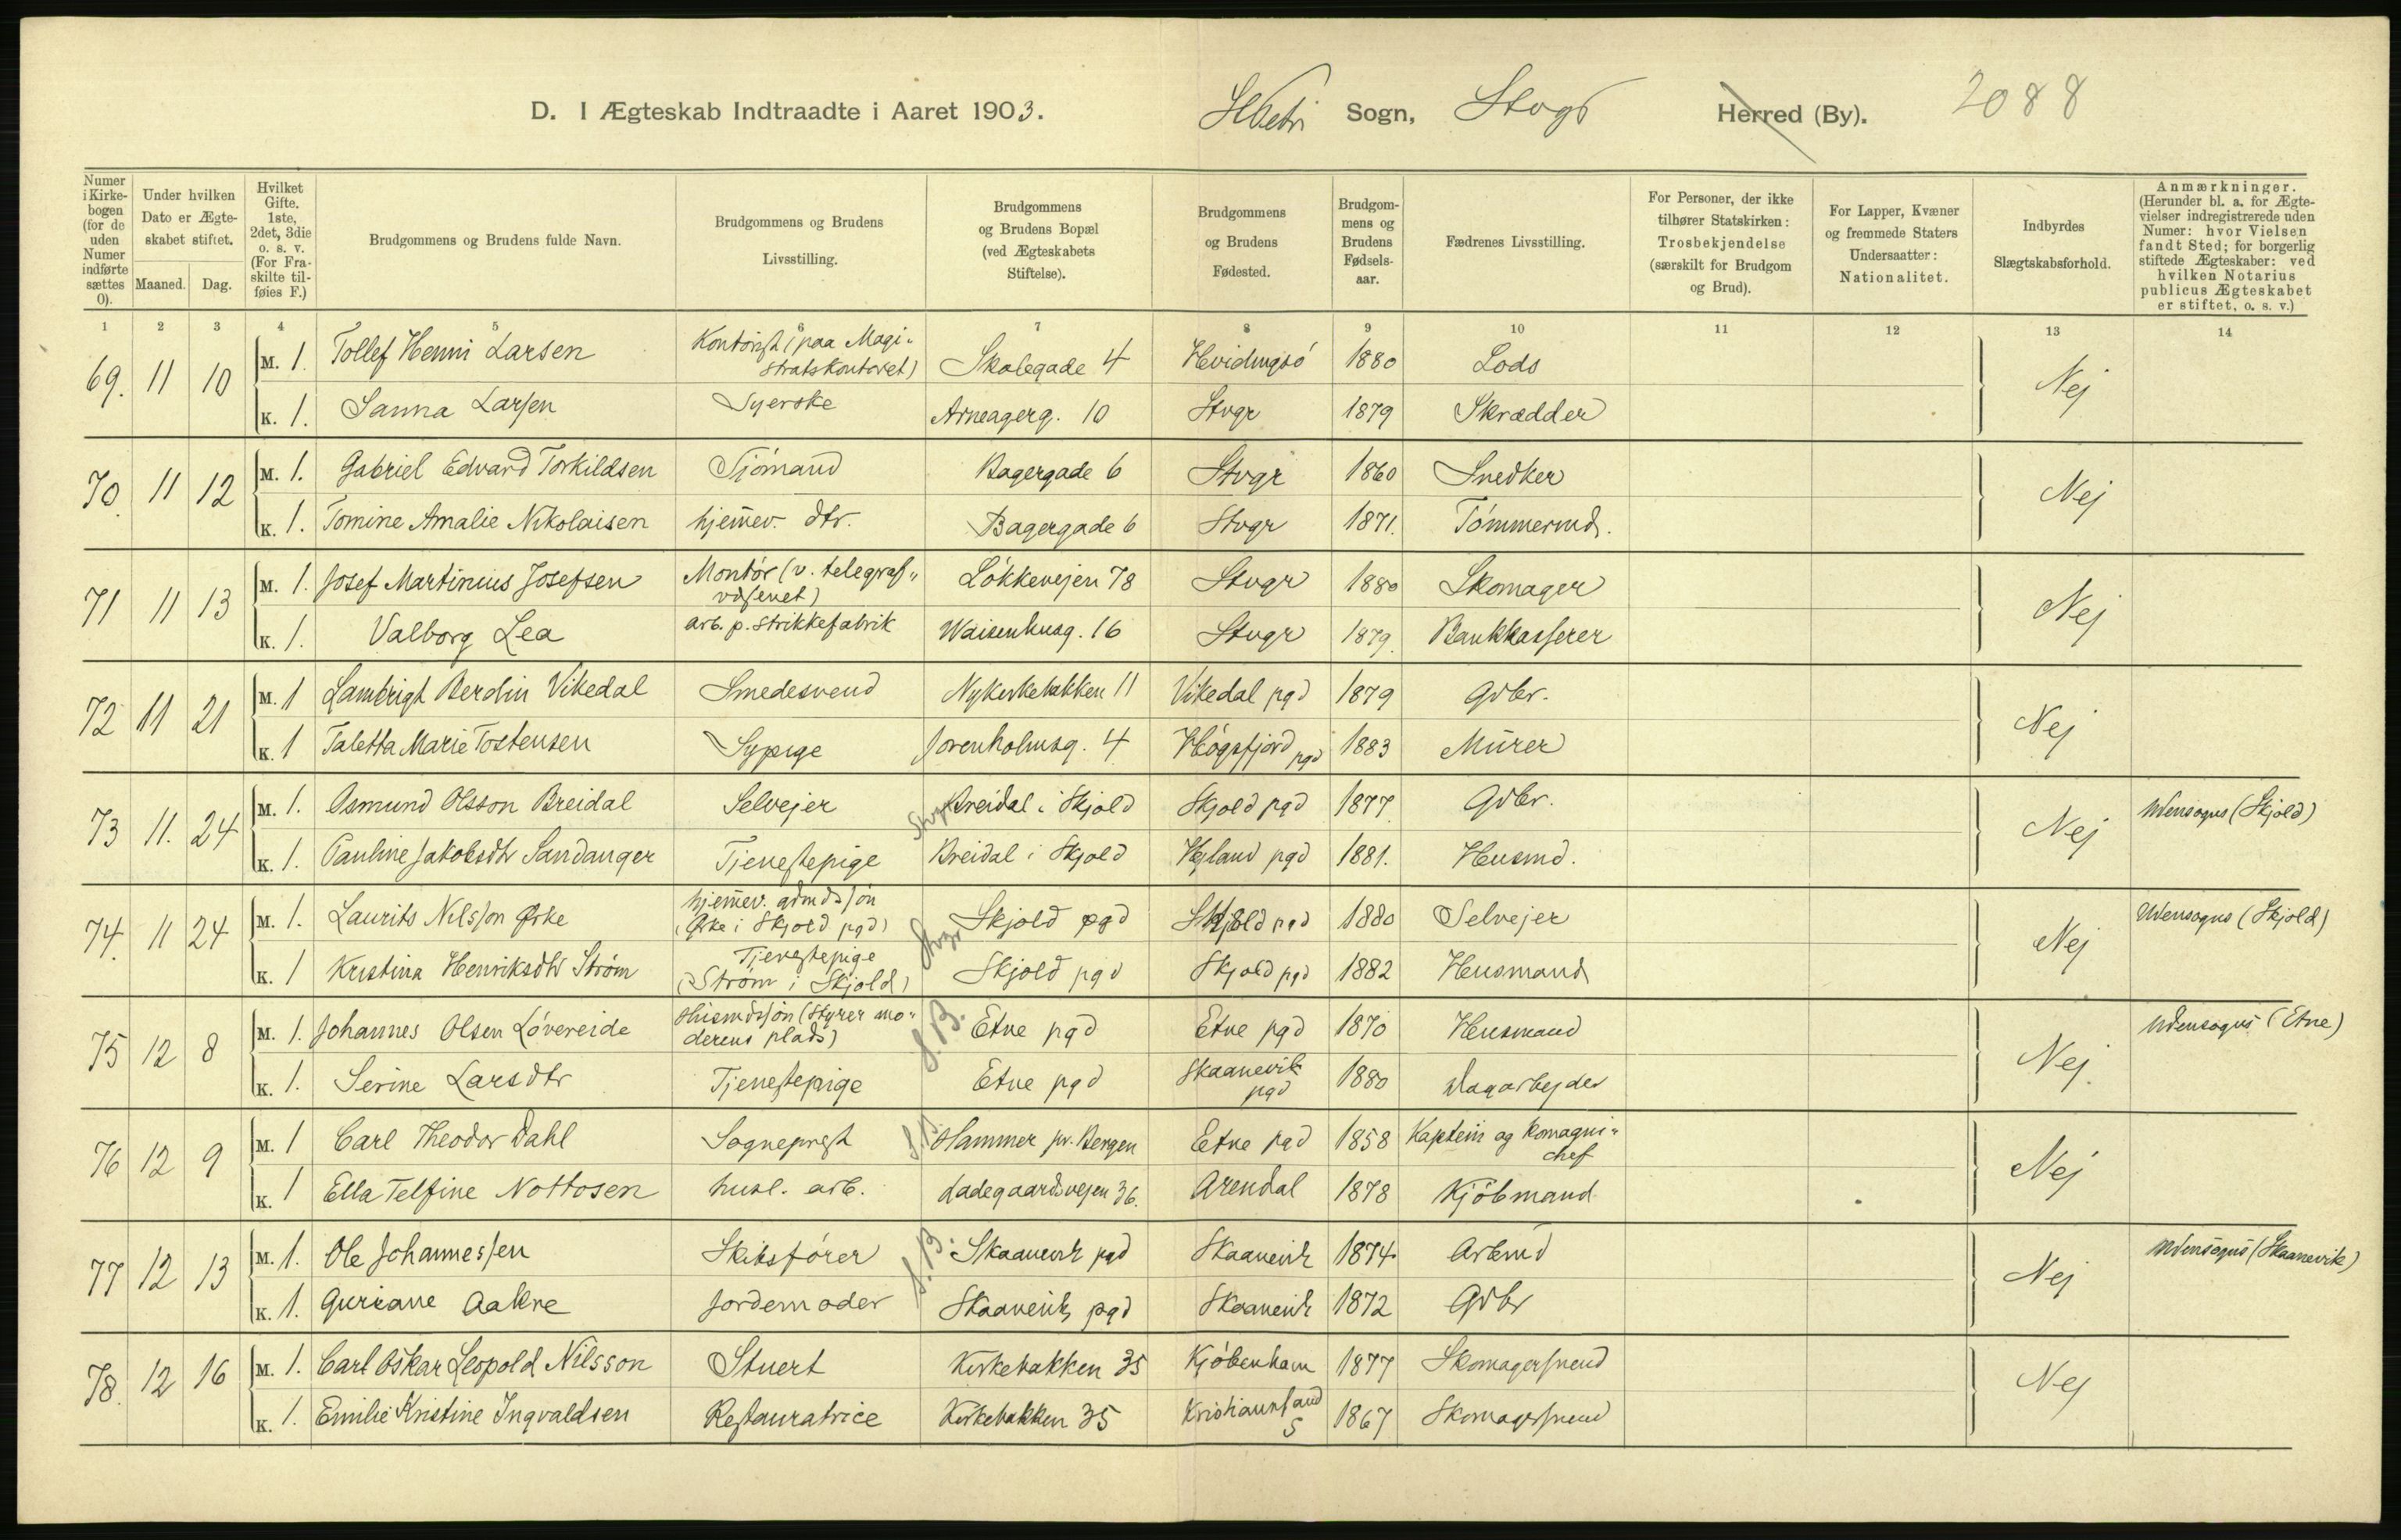 D. I Ægteskab Indtraadte i Aaret 1903. Sogn, Stvgr Herred (By). 2088
Numer i Kirkebogen (for de uden Numer indførte sættes 0).
Under hvilken Dato er Ægteskabet stiftet.
Maaned. Dag.
Hvilket Gifte. 1ste, 2det, 3die o. s. v. (For Fraskilte tilføies F.)
Brudgommens og Brudens fulde Navn.
Brudgommens og Brudens Livsstilling.
Brudgommens og Brudens Bopæl (ved Ægteskabets Stiftelse).
Brudgommens og Brudens Fødested.
Brudgommens og Brudens Fødselsaar.
Fædrenes Livsstilling.
For Personer, der ikke tilhører Statskirken: Trosbekjendelse (særskilt for Brudgom og Brud).
For Lapper, Kvæner og fremmede Staters Undersaatter: Nationalitet.
Indbyrdes Slægtskabsforhold.
Anmærkninger. (Herunder bl. a. for Ægtevielser indregistrerede uden Numer: hvor Vielsen fandt Sted; for borgerlig stiftede Ægteskaber: ved hvilken Notarius publicus Ægteskabet er stiftet, o. s. v.)
1 2 3 4 5 6 7 8 9 10 11 12 13 14
69. 11 10 M. 1. Tollef Henni Larsen Kontorist (paa Magistratskontoret) Skolegade 4 Hvidingsö 1880 Lods Nej
K. 1. Sanna Larsen Syerske Arneagerg. 10 Stvgr 1879 Skrædder
70. 11 12 M. 1. Gabriel Edvard Torkildsen Sjömand Bagergade 6 Stvgr 1860 Snedker Nej
K. 1. Tomine Amalie Nikolaisen hjemev. dtr. Bagergade 6 Stvgr 1871. Tömmermd.
71 11 13 M. 1. Josef Martinius Josefsen Montör (v. telegrafvæsenet) Lökkevejen 78 Stvgr 1880 Skomager Nej
K. 1. Valborg Lea arb. p. strikkefabrik Waisenhusg. 16 Stvgr 1879. Bankkasserer
72 11 21 M. 1 Lambrigt Berdin Vikedal Smedesvend Nykirkebakken 11 Vikedal pgd 1879 Gdbr. Nej
K. 1 Taletta Marie Tostensen Sypige Jorenholmsg. 4 Högsfjord pgd 1883 Murer
73 11. 24 M. 1. Osmund Olsson Breidal Selvejer Breidal i Skjold Skjold pgd 1877 Gdbr. Nej Udensogns (Skjold)
K. 1. Pauline Jakobsdtr Sandanger Tjenestepige Stvgr Breidal i Skjold Hejland pgd 1881. Husmd.
74. 11 24 M. 1. Laurits Nilsson Ørke hjemev. gdmdssøn (Ørke i Skjold pgd) Skjold pgd Skjold pgd 1880 Selvejer Nej Udensogns (Skjold)
K. 1 Kristina Henriksdtr Strøm Tjenestepige (Strøm i Skjold) Stvgr Skjold pgd Skjold pgd 1882 Husmand
75 12 8 M. 1. Johannes Olsen Lövereide Husmdssön (styrer moderens plads) S.B. Etne pgd Etne pgd 1870 Husmand Nej. Udensogns (Etne)
K. 1. Serine Larsdtr Tjenestepige Etne pgd Skaanevik pgd 1880 Dagarbejder
76 12 9 M. 1 Carl Theodor Dahl Sogneprest Hammer pr. Bergen Etne pgd 1858 Kaptein og Komagnichef Nej
K. 1 Ella Telfine Nottosen husl. arb. Ladegaardsvejen 36. Arendal 1878 Kjöbmand
77 12 13 M. 1. Ole Johannessen Skibsförer S.B. Skaanevik pgd Skaanevik 1874 Arbmd Nej Udensogns (Skaanevik)
K. 1. Guriane Aakre Jordemoder Skaanevik pgd Skaanevik 1872 Gdbr
78. 12 16 M. 1. Carl Oskar Leopold Nilsson Stuert Kirkebakken 35 Kjöbenhavn 1877 Skomagersvend Nej
K. 1. Emilie Kristine Ingvaldsen Restauratrice Kirkebakken 35 Kristianssand S 1867 Skomagersvend